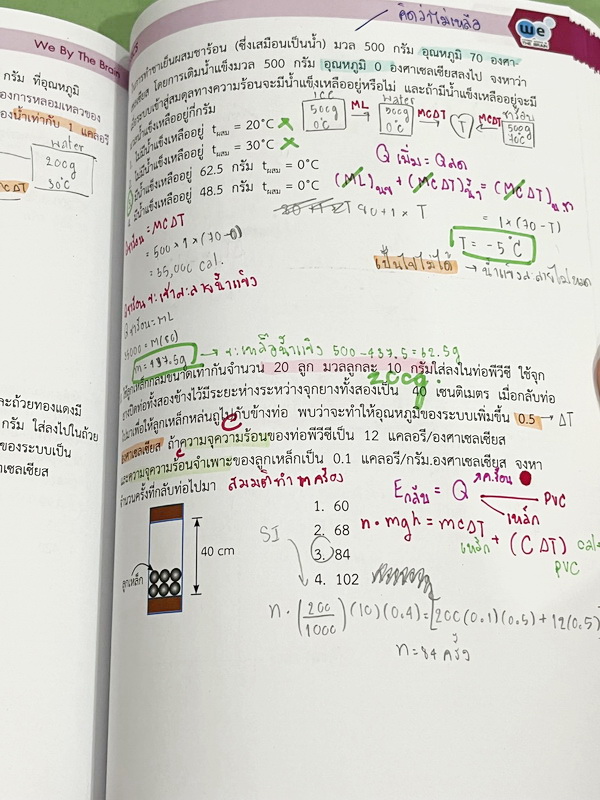 We By The Brain
คิดว่าไม่เหลือ
we
THE BRAIN
กรัม ที่อุณหภูมิ
องการหลอมเหลวของ
องน้ำเท่ากับ 1 แคลอรี
water
200g
30°C
MCΔT
ละถ้วยทองแดงมี
กรัม ใส่ลงไปในถ้วย
ของระบบเป็น
าเซลเซียส
ในการทำชาเย็นผสมชาร้อน (ซึ่งเสมือนเป็นน้ำ) มวล 500 กรัม อุณหภูมิ 70 องศา
เซลเซียส โดยการเติมน้ำแข็งมวล 500 กรัม อุณหภูมิ 0 องศาเซลเซียสลงไป จงหาว่า
เมื่อระบบเข้าสู่สมดุลทางความร้อนจะมีน้ำแข็งเหลืออยู่หรือไม่ และถ้ามีน้ำแข็งเหลืออยู่จะมี
น้ำแข็งเหลืออยู่กี่กรัม
ice
500g
0°C
ML
water
500g
0°C
MCΔT
T
MCΔT
ชาร้อน
500g
70°C
ไม่มีน้ำแข็งเหลืออยู่ tผสม = 20°C
ไม่มีน้ำแข็งเหลืออยู่ tผสม = 30°C
มีน้ำแข็งเหลืออยู่ 62.5 กรัม tผสม = 0°C
มีน้ำแข็งเหลืออยู่ 48.5 กรัม tผสม = 0°C
Q เพิ่ม = Q ลด
(ML)นขง + (MCΔT)น้ำ = (MCΔT)น.ชา
80 + 1 × T
= 1×(70-T)
T = -5°C
เป็นไปไม่ได้ → น้ำแข็งละลายไม่หมด
= MCΔT
= 500×1×(70-0)
= 35,000 cal.
m = 437.5g
→ จะเหลือน้ำแข็ง 500-437.5 = 62.5g
200g
ลูกเหล็กกลมขนาดเท่ากันจำนวน 20 ลูก มวลลูกละ 10 กรัมใส่ลงในท่อพีวีซี ใช้จุก
ยางปิดท่อทั้งสองข้างไว้มีระยะห่างระหว่างจุกยางทั้งสองเป็น 40 เซนติเมตร เมื่อกลับท่อ
ไปมาเพื่อให้ลูกเหล็กหล่นถูไปกับข้างท่อ พบว่าจะทำให้อุณหภูมิของระบบเพิ่มขึ้น 0.5 → ΔT
องศาเซลเซียส ถ้าความจุความร้อนของท่อพีวีซีเป็น 12 แคลอรี/องศาเซลเซียส
และความจุความร้อนจำเพาะของลูกเหล็กเป็น 0.1 แคลอรี/กรัม.องศาเซลเซียส จงหา
จำนวนครั้งที่กลับท่อไปมา
1. 60
2. 68
3. 84
4. 102
ลูกเหล็ก
40 cm
Eกลับ = Q
PVC
เหล็ก
n·mgh = mCΔT + (CΔT) cal
เหล็ก
PVC
SI
n·(200/1000)(10)(0.4) = [200(0.1)(0.5) + 12(0.5)
n = 84 ครั้ง